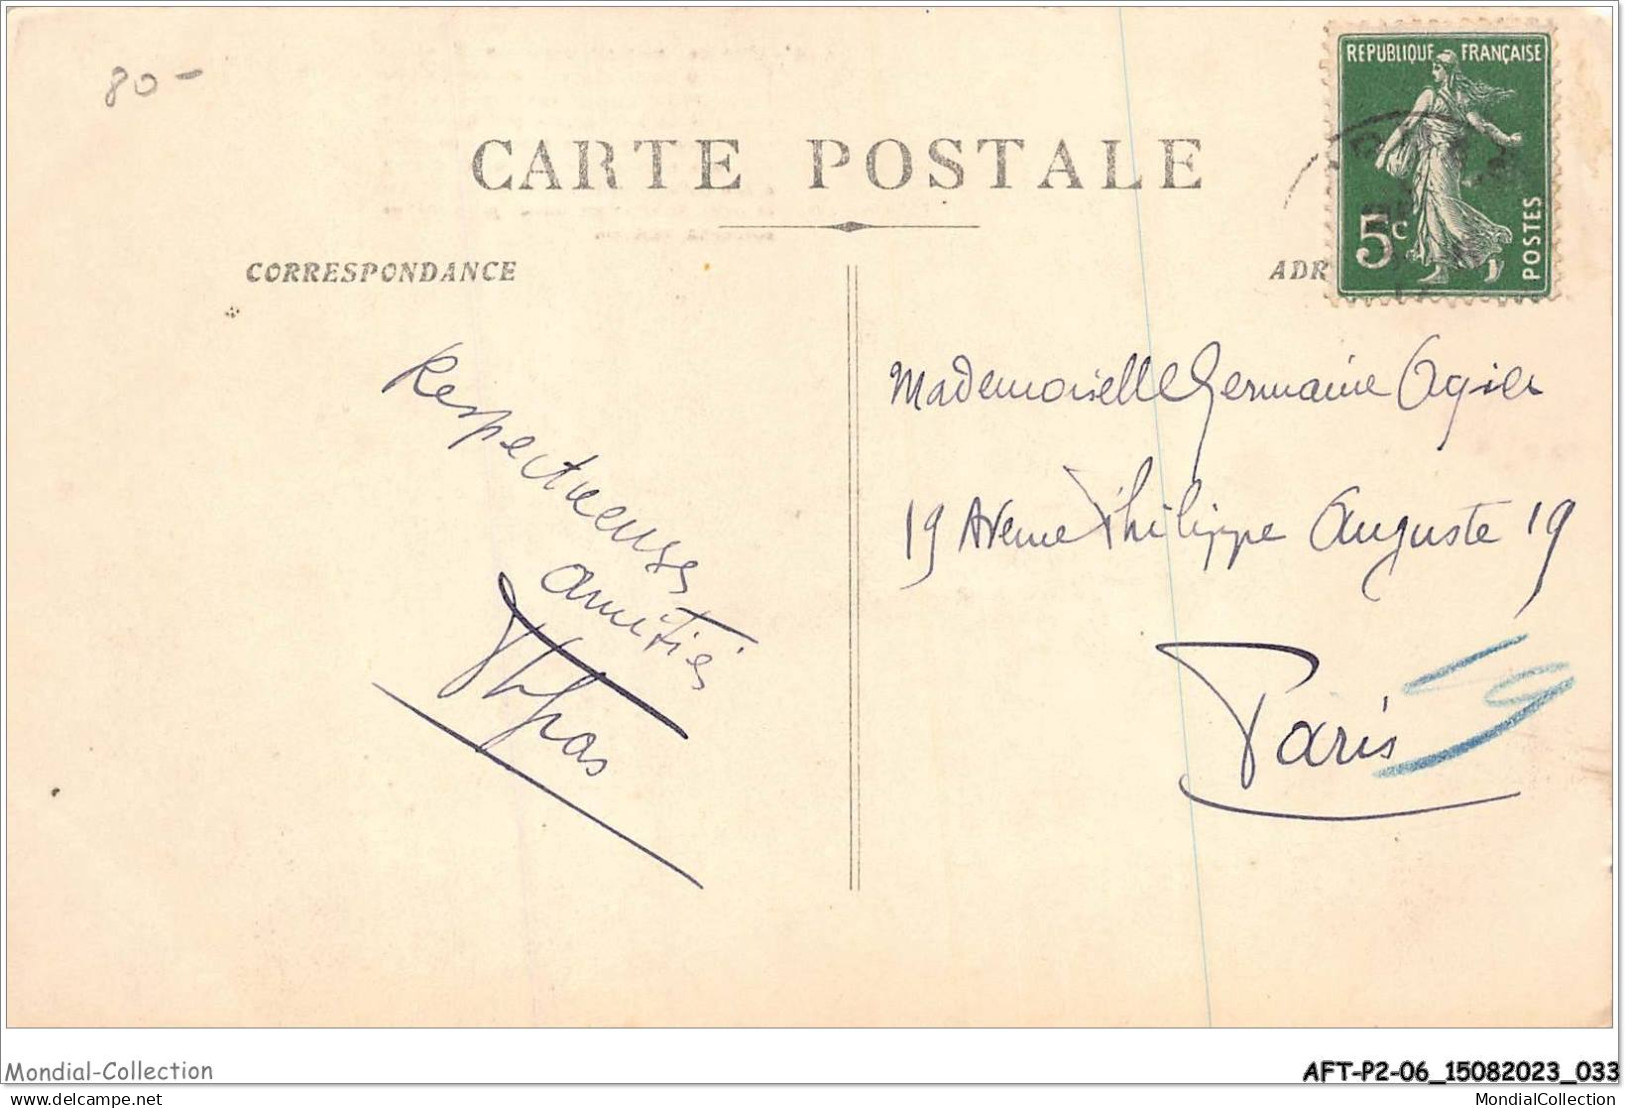 80-
REPUBLIQUE FRANÇAISE
5c
POSTES
CARTE POSTALE
CORRESPONDANCE
ADR
Respectueuses
amitiés
Mademoiselle Germaine Ogier
19 Avenue Philippe Auguste 19
Paris
19
Mondial-Collection
AFT-P2-06_15082023_033
delcampe.net
MondialCollection